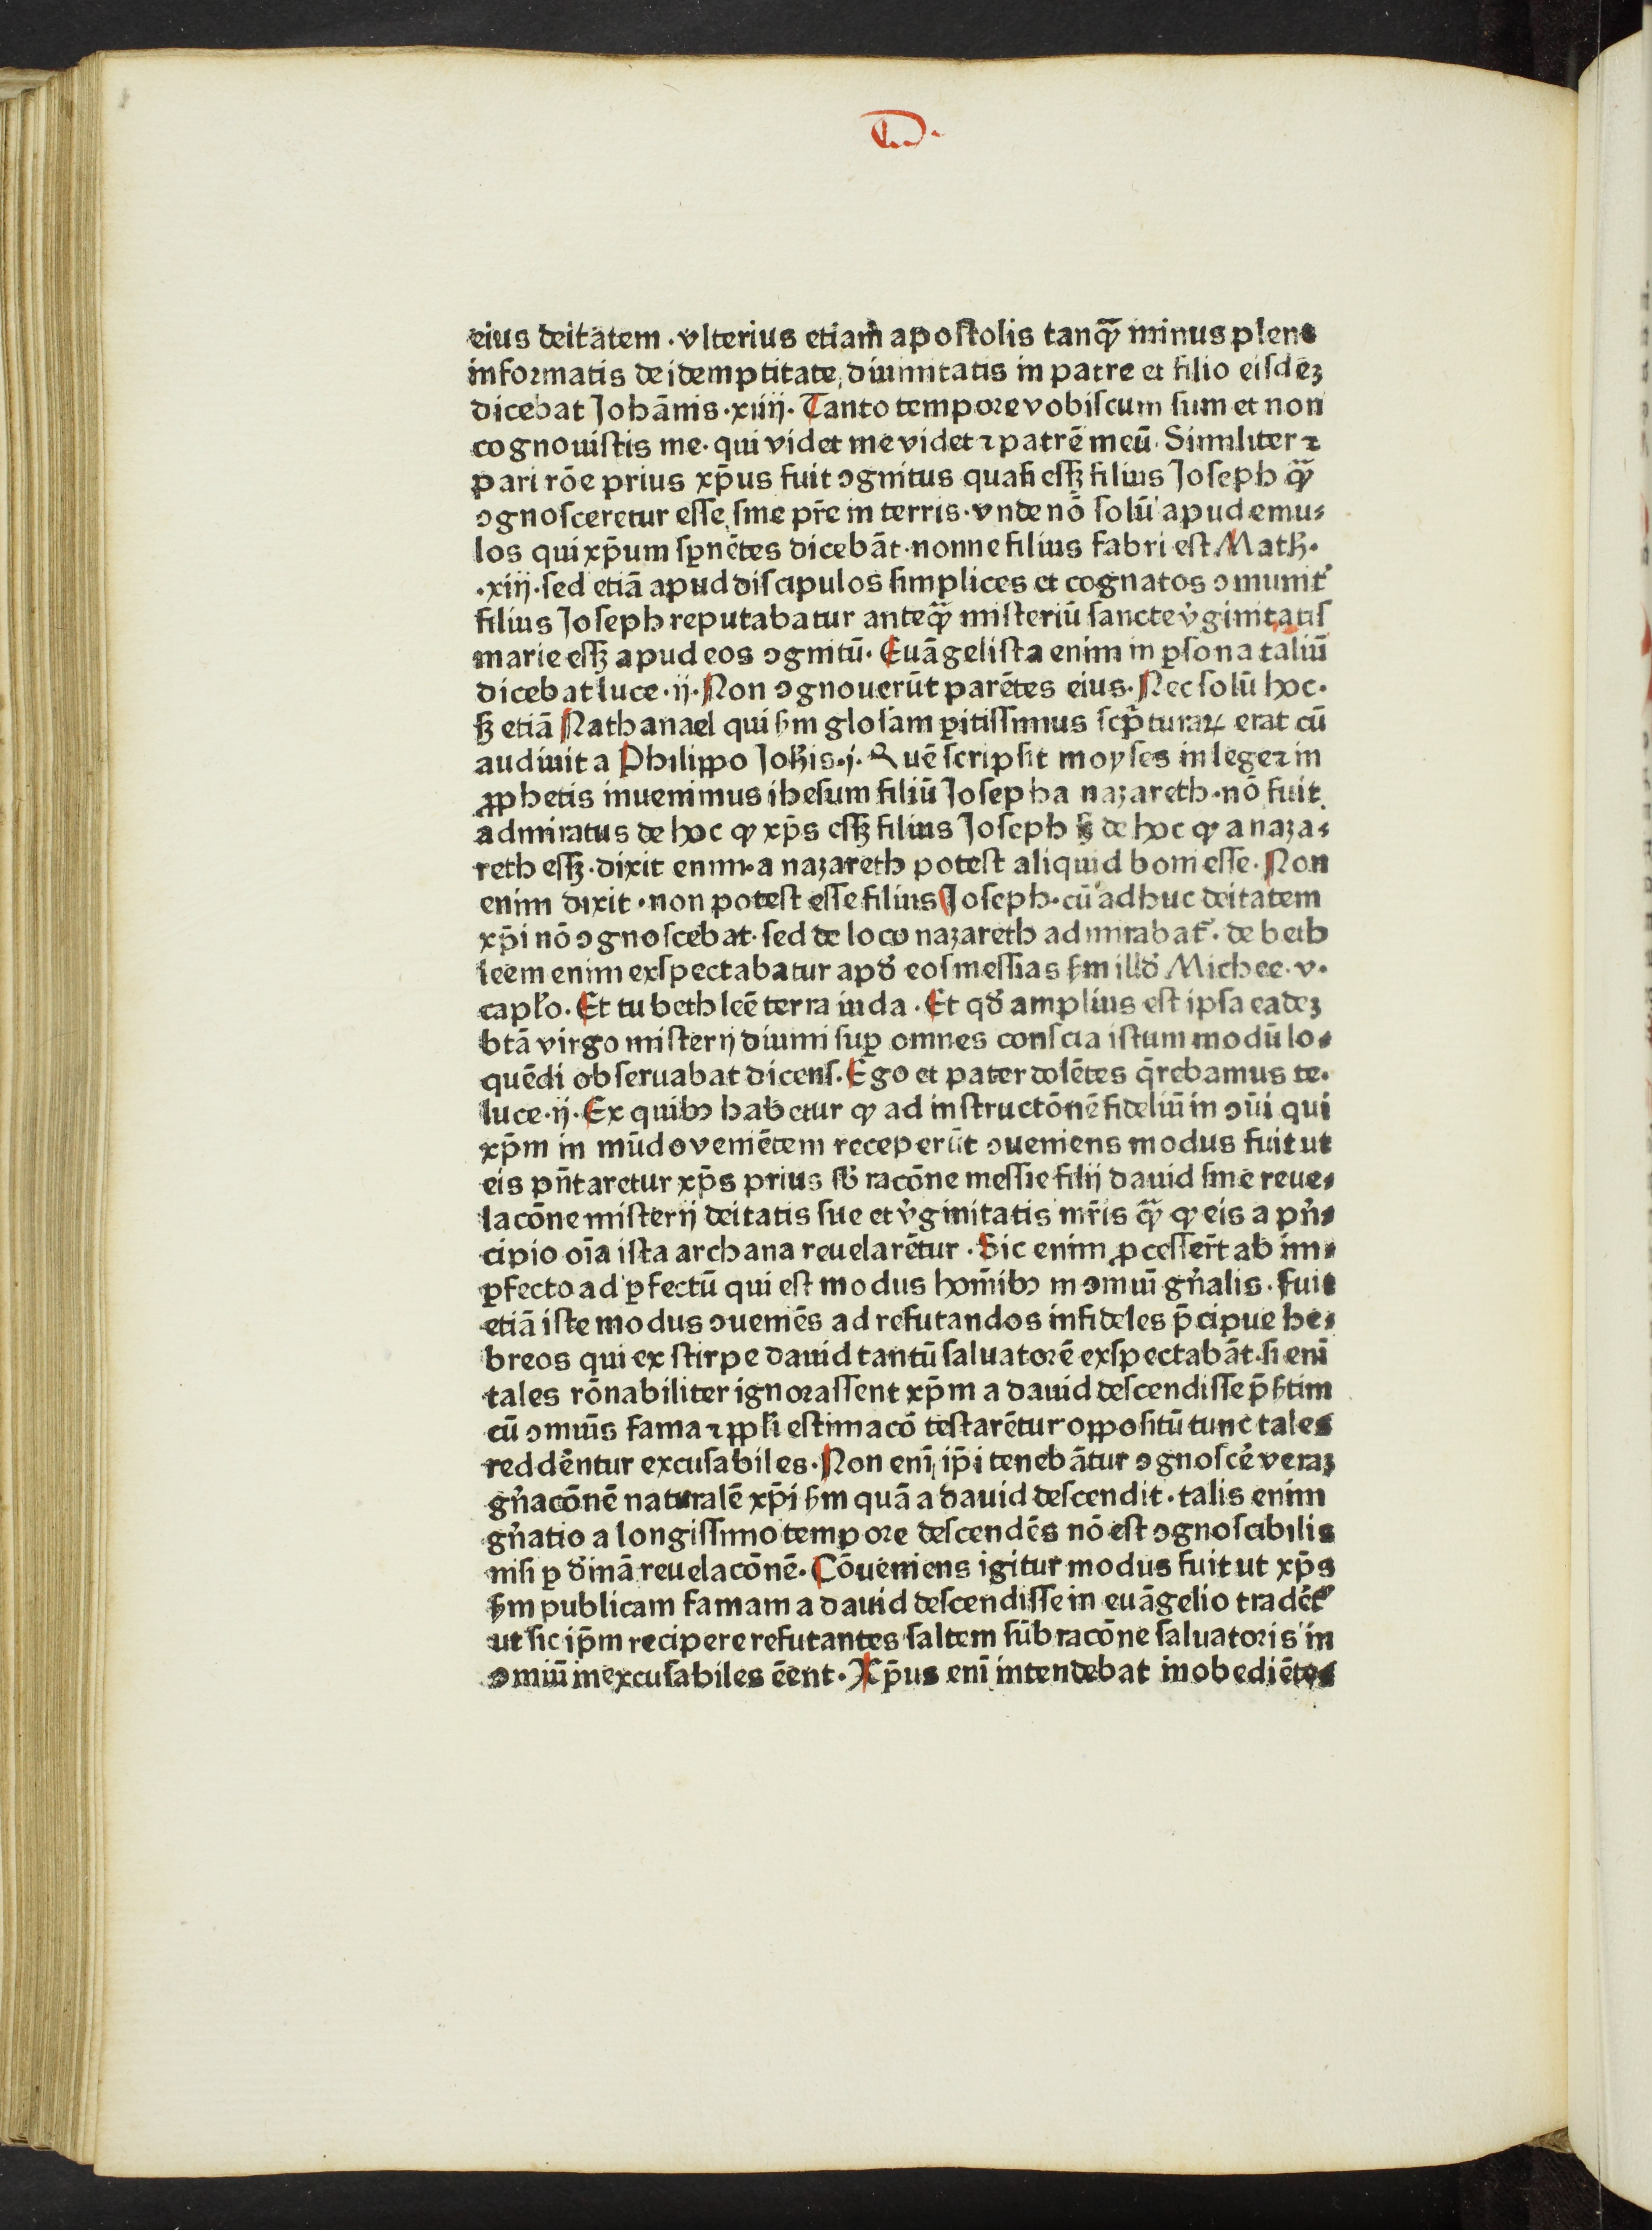 eius deitatem · vlterius etiam apostolis tanꝙ̃ minus plene
informatis de idemptitate diuinitatis in patre et filio eisdeꝫ
dicebat Johānis · xiiij · Tanto tempore vobiscum sum et non
cognouistis me · qui videt me videt ⁊ patrē meū · Similiter ⁊
pari rōe prius xp̄us fuit ꝯgnitus quasi essꝫ filius Joseph ꝙ̃
ꝯgnosceretur esse sine pr̄e in terris · vnde nō solū apud emu⸗
los qui xp̄um sꝑnētes dicebāt · nonne filius fabri est Math̄ ·
· xiij · sed etiā apud discipulos simplices et cognatos ꝯmunit᷑
filius Joseph reputabatur anteꝙ̃ misteriū sancte v̓ginitatis
marie essꝫ apud eos ꝯgnitū · Euāgelista enim in ꝑsona taliū
dicebat luce · ij · Non ꝯgnouerūt parētes eius · Nec solū hoc ·
sꝫ etiā Nathanael qui sm̄ glosam ꝑitissimus scp̄turaꝝ erat cū
audiuit a Philippo Joh̄is · j · Quē scripsit moyses in lege ⁊ in
ꝓphetis inuenimus ihesum filiū Joseph a nazareth · nō fuit
admiratus de hoc ꝙ xp̄s essꝫ filius Joseph sꝫ de hoc ꝙ a naza⸗
reth essꝫ · dixit enim · a nazareth potest aliquid boni esse · Non
enim dixit · non potest esse filius Joseph · cū adhuc deitatem
xp̄i nō ꝯgnoscebat · sed de loco nazareth admirabat᷑ · de beth
leem enim exspectabatur apd̓ eos messias sm̄ illd̓ Michee · v ·
capl̓o · Et tu bethleē terra iuda · Et qd̓ amplius est ipsa eadeꝫ
btā virgo misterij diuini suꝑ omnes conscia istum modū lo⸗
quēdi obseruabat dicens · Ego et pater dolētes q̄rebamus te ·
luce · ij · Ex quibꝯ habetur ꝙ ad instructōnē fideliū in ꝯūi qui
xp̄m in mūdo veniētem receperūt ꝯueniens modus fuit ut
eis pn̄taretur xp̄s prius sb̓ racōne messie filij dauid sine reue⸗
lacōne misterij deitatis sue et v̓ginitatis mr̄is ꝙ̃ ꝙ eis a pn̓⸗
cipio oīa ista archana reuelarētur · Sic enim ꝓcesser̄t ab im⸗
ꝑfecto ad ꝑfectū qui est modus homībꝯ in ꝯmuī gn̓alis · fuit
etiā iste modus ꝯueniēs ad refutandos infideles p̄cipue he⸗
breos qui ex stirpe dauid tantū saluatorē exspectabāt · si enī
tales rōnabiliter ignorassent xp̄m a dauid descendisse p̄s̄tim
cū ꝯmuīs fama ⁊ ꝓpl̓i estimacō testarētur oppositū tunc tales
reddēntur excusabiles · Non enī ip̄i tenebātur ꝯgnoscē veraꝫ
gn̓acōnē naturalē xp̄i sm̄ quā a dauid descendit · talis enim
gn̓atio a longissimo tempore descendēs nō est ꝯgnoscibilis
nisi ꝑ d̓inā reuelacōnē · Cōueniens igitur modus fuit ut xp̄s
sm̄ publicam famam a dauid descendisse in euāgelio tradēt᷑
ut sic ip̄m recipere refutantes saltem sub racōne saluatoris in
ꝯmiū inexcusabiles ēent · Xp̄us enī intendebat inobediētes